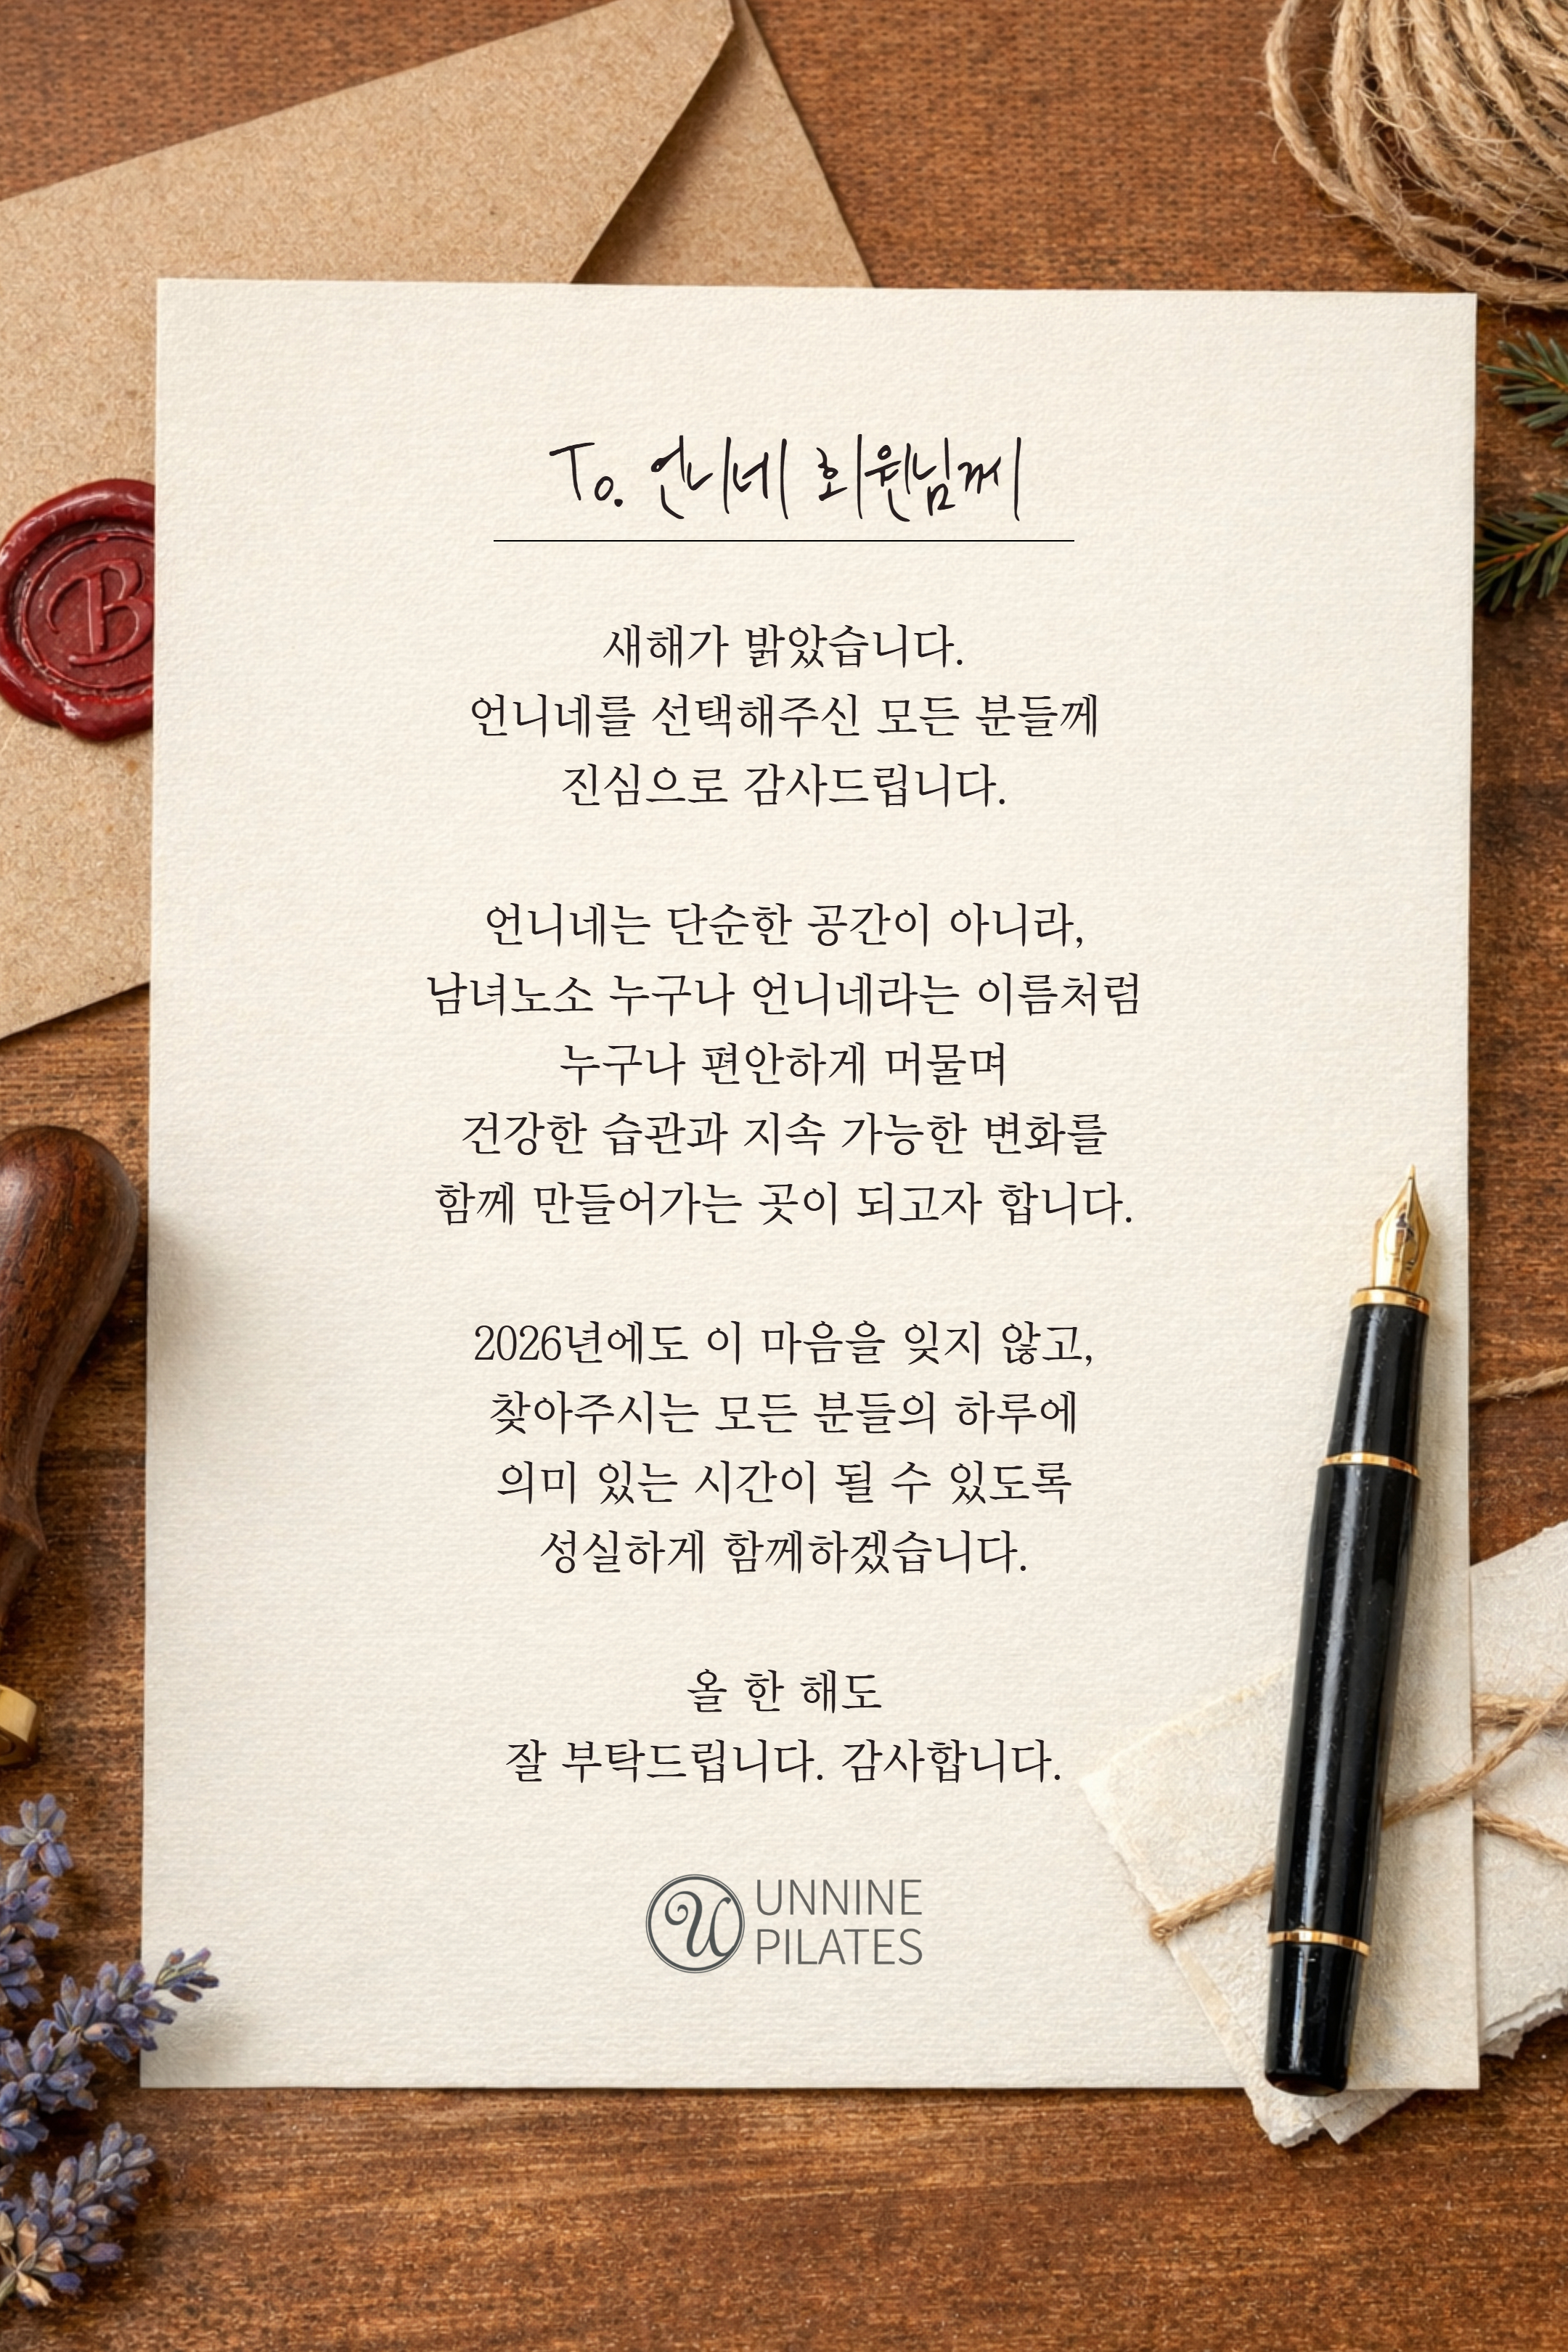 To. 언니네 회원님께
새해가 밝았습니다.
언니네를 선택해주신 모든 분들께
진심으로 감사드립니다.
언니네는 단순한 공간이 아니라,
남녀노소 누구나 언니네라는 이름처럼
누구나 편안하게 머물며
건강한 습관과 지속 가능한 변화를
함께 만들어가는 곳이 되고자 합니다.
2026년에도 이 마음을 잊지 않고,
찾아주시는 모든 분들의 하루에
의미 있는 시간이 될 수 있도록
성실하게 함께하겠습니다.
올 한 해도
잘 부탁드립니다. 감사합니다.
U
UNNINE
PILATES
B